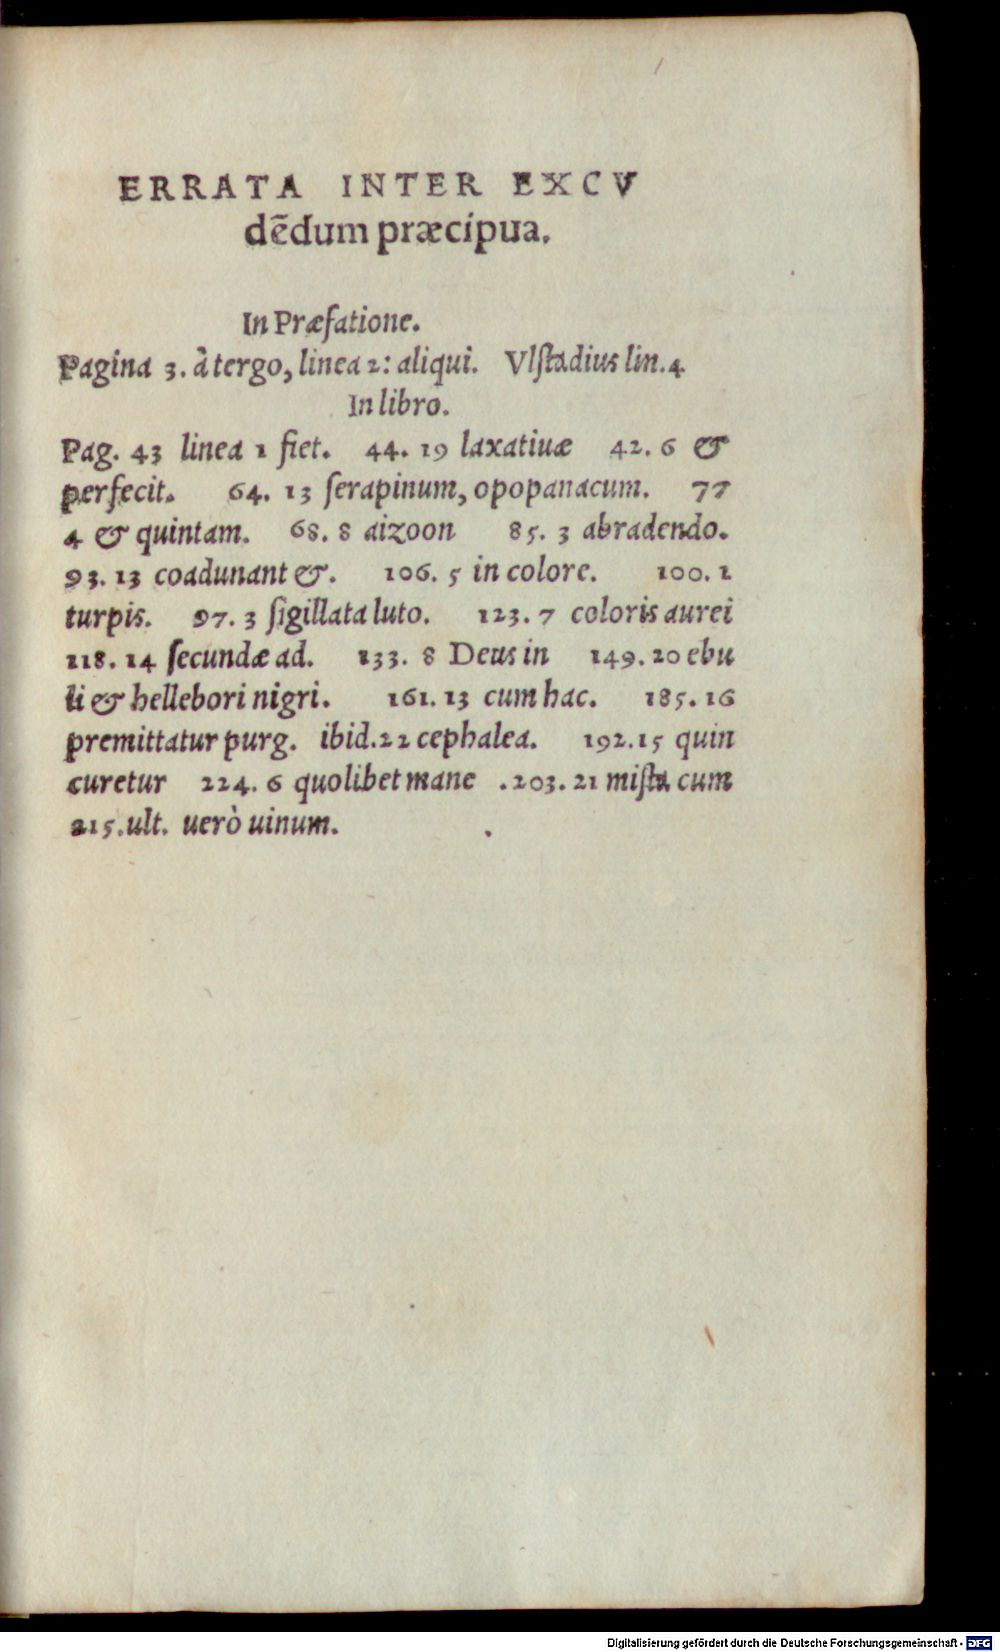 ERRATA INTER EXCV
dẽdum præcipua.
In Præfatione.
Pagina 3. à tergo, linea 2: aliqui. Vlſtadius lin. 4
In libro.
Pag. 43 linea 1 fiet. 44. 19 laxatiuæ 42. 6 &
perfecit. 64. 13 ſerapinum, opopanacum. 77
4 & quintam. 68. 8 aizoon 85. 3 abradendo.
93. 13 coadunant &. 106. 5 in colore. 100. 1
turpis. 97. 3 ſigillata luto. 123. 7 coloris aurei
118. 14 ſecundæ ad. 133. 8 Deus in 149. 20 ebu
li & hellebori nigri. 161. 13 cum hac. 185. 16
premittatur purg. ibid. 22 cephalea. 192. 15 quin
curetur 224. 6 quolibet mane . 203. 21 miſta cum
215. ult. uerò uinum.
Digitalisierung gefördert durch die Deutsche Forschungsgemeinschaft - DFG